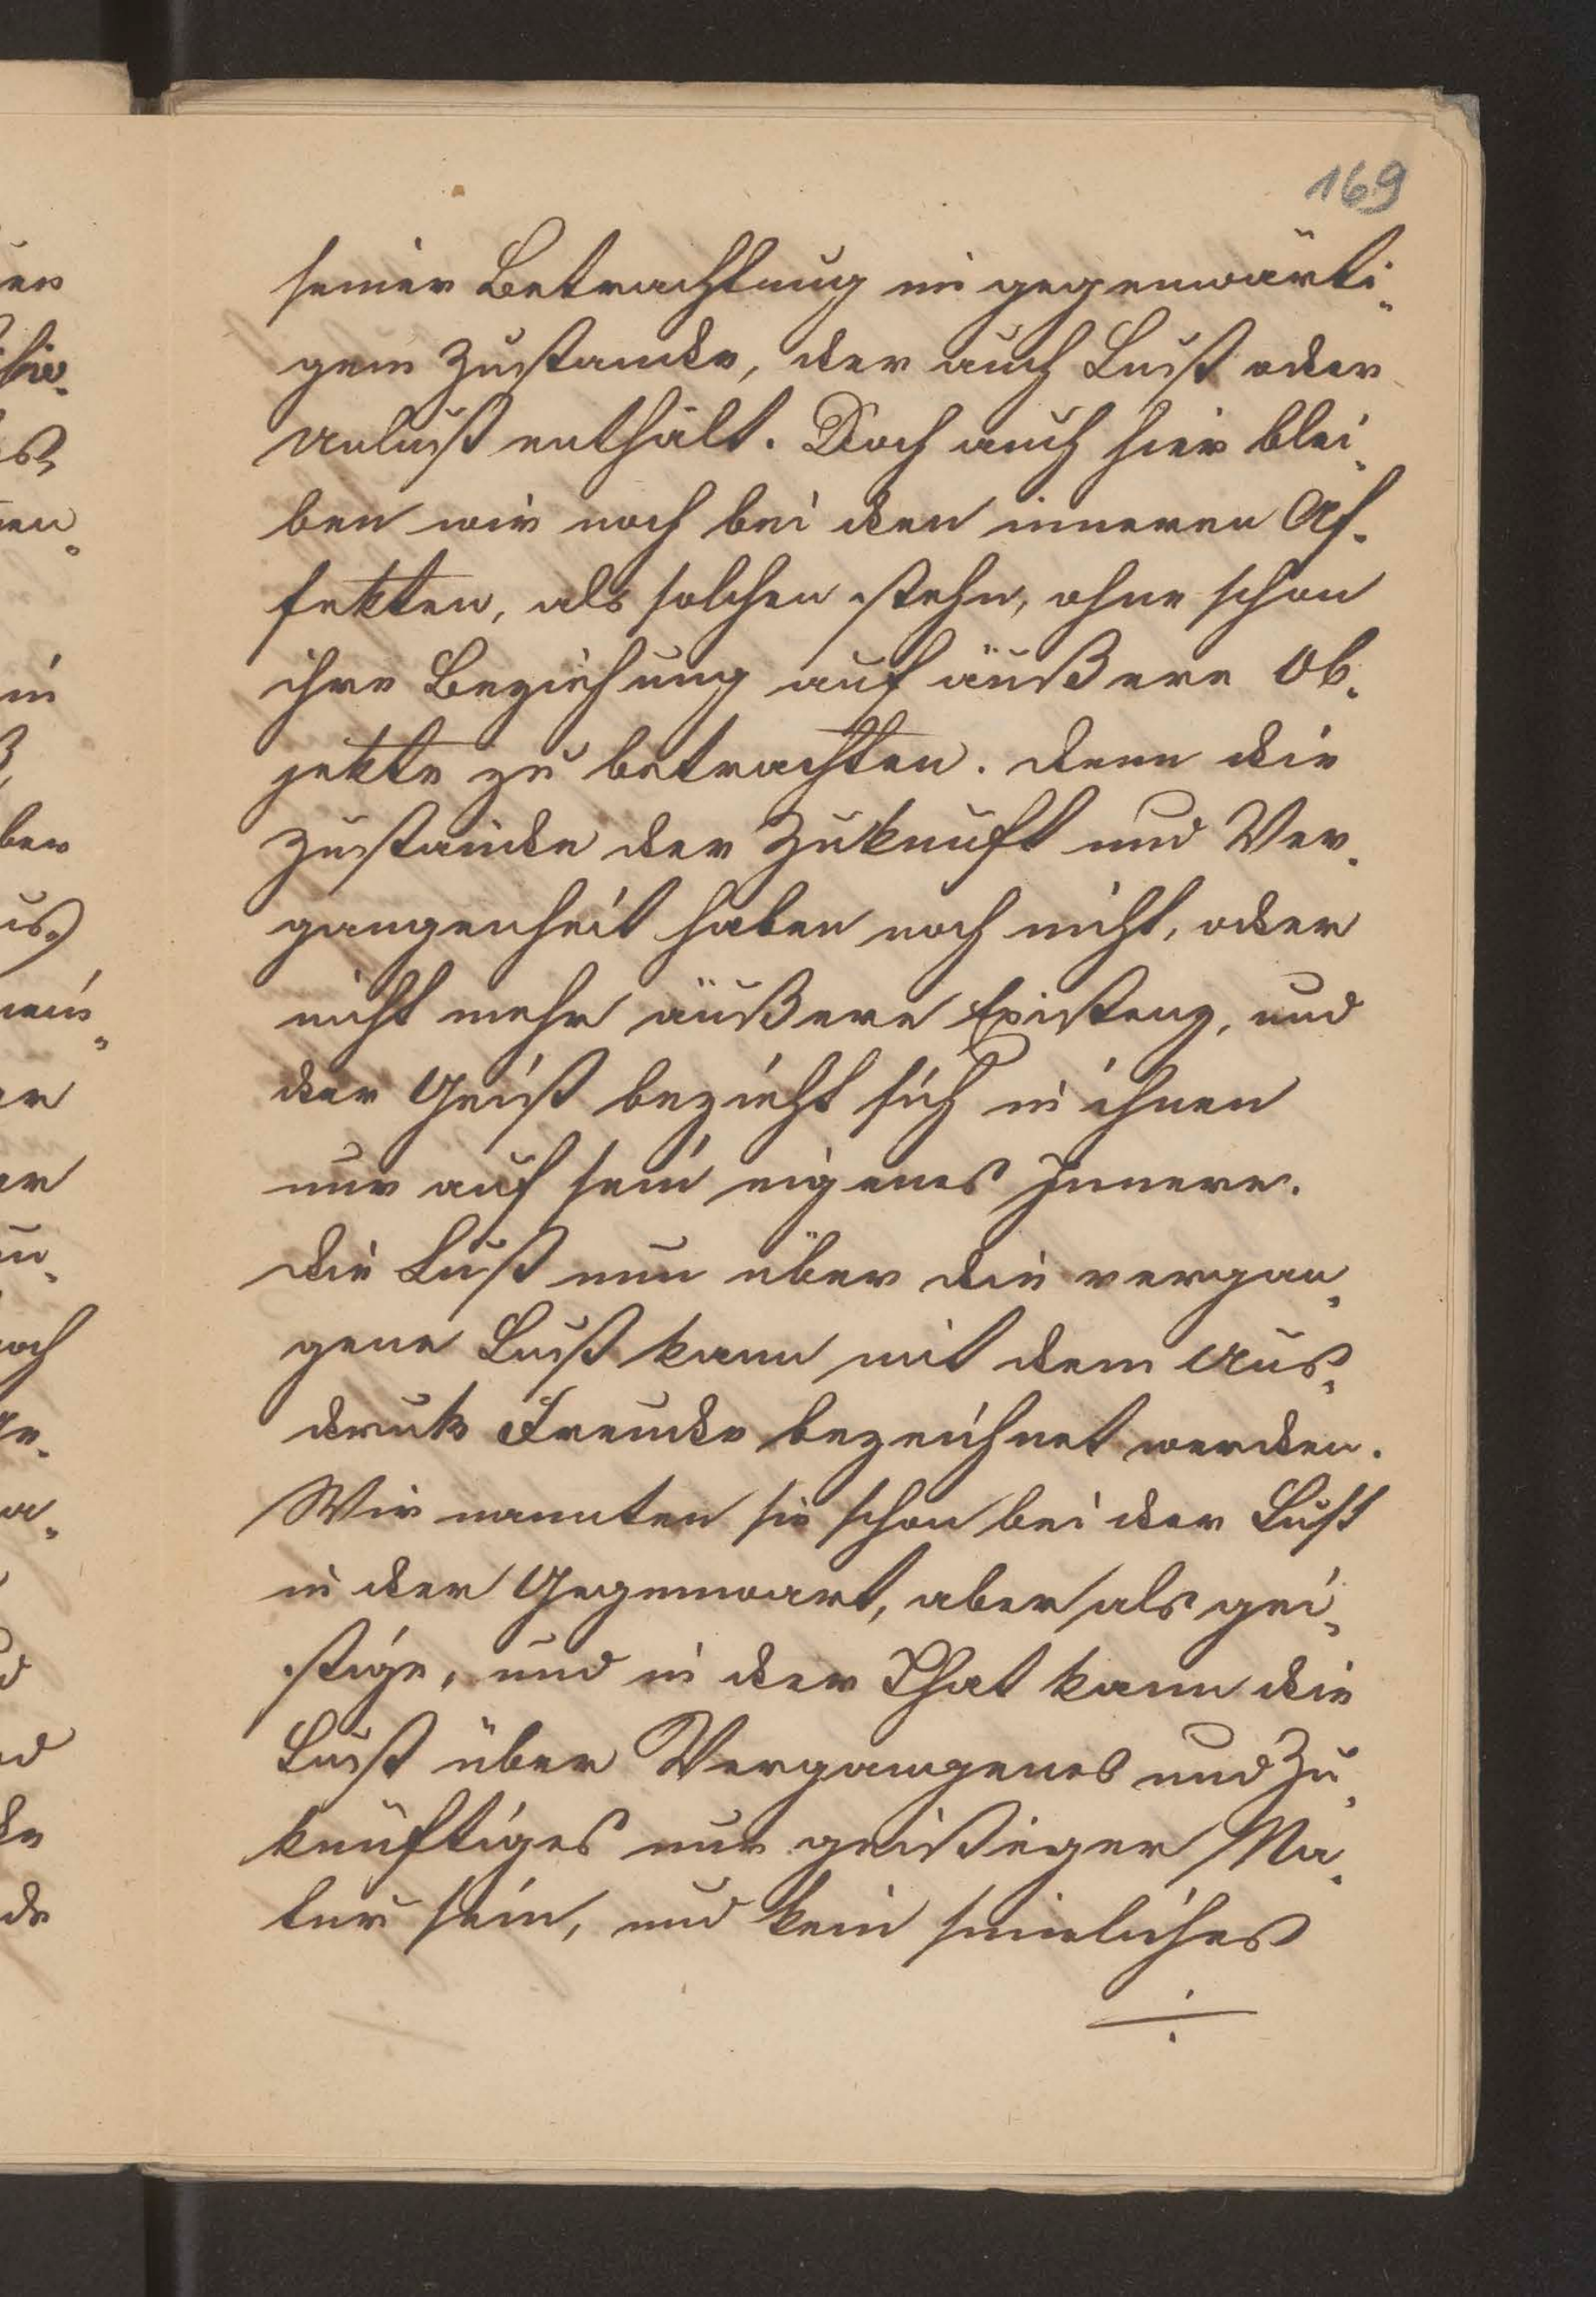 169
seiner Betrachtung im gegenwärti-
gem Zustande, der auch Lust oder
Unlust enthält. Doch auch hier blei-
ben wir noch bei den inneren Af-
fekten, als solchen stehn, ohne schon
ihre Beziehung auf äußere Ob-
jekte zu betrachten. Denn die
Zustände der Zukunft und Ver-
gangenheit haben noch nicht, oder
nicht mehr äußere Existenz, und
der Geist bezieht sich in ihnen
nur auf sein eigenes Innere.
Die Lust nun über die vergan-
gene Lust kann mit dem Aus-
druk Freude bezeichnet werden.
Wir nannten sie schon bei der Lust
in der Gegenwart, aber als gei-
stige, und in der That kann die
Lust über Vergangenes und Zu-
künftiges nur geistiger Na-
tur sein, und kein sinnliches